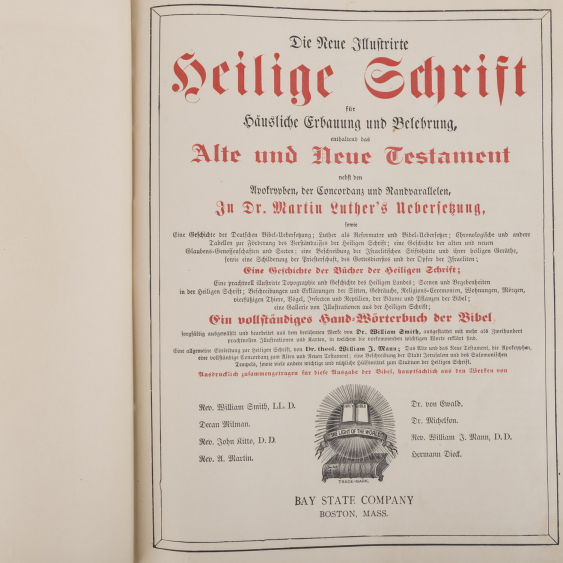 Die Neue Illustrirte
Heilige Schrift
für
Häusliche Erbauung und Belehrung,
enthaltend das
Alte und Neue Testament
nebst den
Apokryphen, der Concordanz und Randparallelen,
In Dr. Martin Luther's Uebersetzung,
sowie
Eine Geschichte der Deutschen Bibel-Uebersetzung; Luther als Reformator und Bibel-Uebersetzer; Chronologische und andere
Tabellen zur Förderung des Verständnisses der Heiligen Schrift; eine Geschichte der alten und neuen
Glaubens-Genossenschaften und Secten; eine Beschreibung der Israelitischen Stiftshütte und ihrer heiligen Geräthe,
sowie eine Schilderung der Priesterschaft, des Gottesdienstes und der Opfer der Israeliten;
Eine Geschichte der Bücher der Heiligen Schrift;
Eine prachtvoll illustrirte Topographie und Geschichte des Heiligen Landes; Scenen und Begebenheiten
in der Heiligen Schrift; Beschreibungen und Erklärungen der Sitten, Gebräuche, Religions-Ceremonien, Wohnungen, Münzen,
vierfüßigen Thiere, Vögel, Insecten und Reptilien, der Bäume und Pflanzen der Bibel;
eine Gallerie von Illustrationen aus der Heiligen Schrift;
Ein vollständiges Hand-Wörterbuch der Bibel
sorgfältig ausgewählt und bearbeitet aus dem berühmten Werke von Dr. William Smith, ausgestattet mit mehr als zweihundert
prachtvollen Illustrationen und Karten, in welchen die vorkommenden wichtigen Worte erklärt sind.
Eine allgemeine Einleitung zur Heiligen Schrift, von Dr. theol. William J. Mann; Das Alte und das Neue Testament, die Apokryphen,
eine vollständige Concordanz zum Alten und Neuen Testament; eine Beschreibung der Stadt Jerusalem und des Salomonischen
Tempels, sowie viele andere wichtige und nützliche Hülfsmittel zum Studium der Heiligen Schrift.
Ausdrücklich zusammengetragen für diese Ausgabe der Bibel, hauptsächlich aus den Werken von
Rev. William Smith, LL. D.
Decan Milman.
Rev. John Kitto, D. D.
Rev. A. Martin.
Dr. von Ewald.
Dr. Michelson.
Rev. William J. Mann, D. D.
Hermann Dieck.
THE LIGHT OF THE WORLD
TRADE-MARK.
BAY STATE COMPANY
BOSTON, MASS.